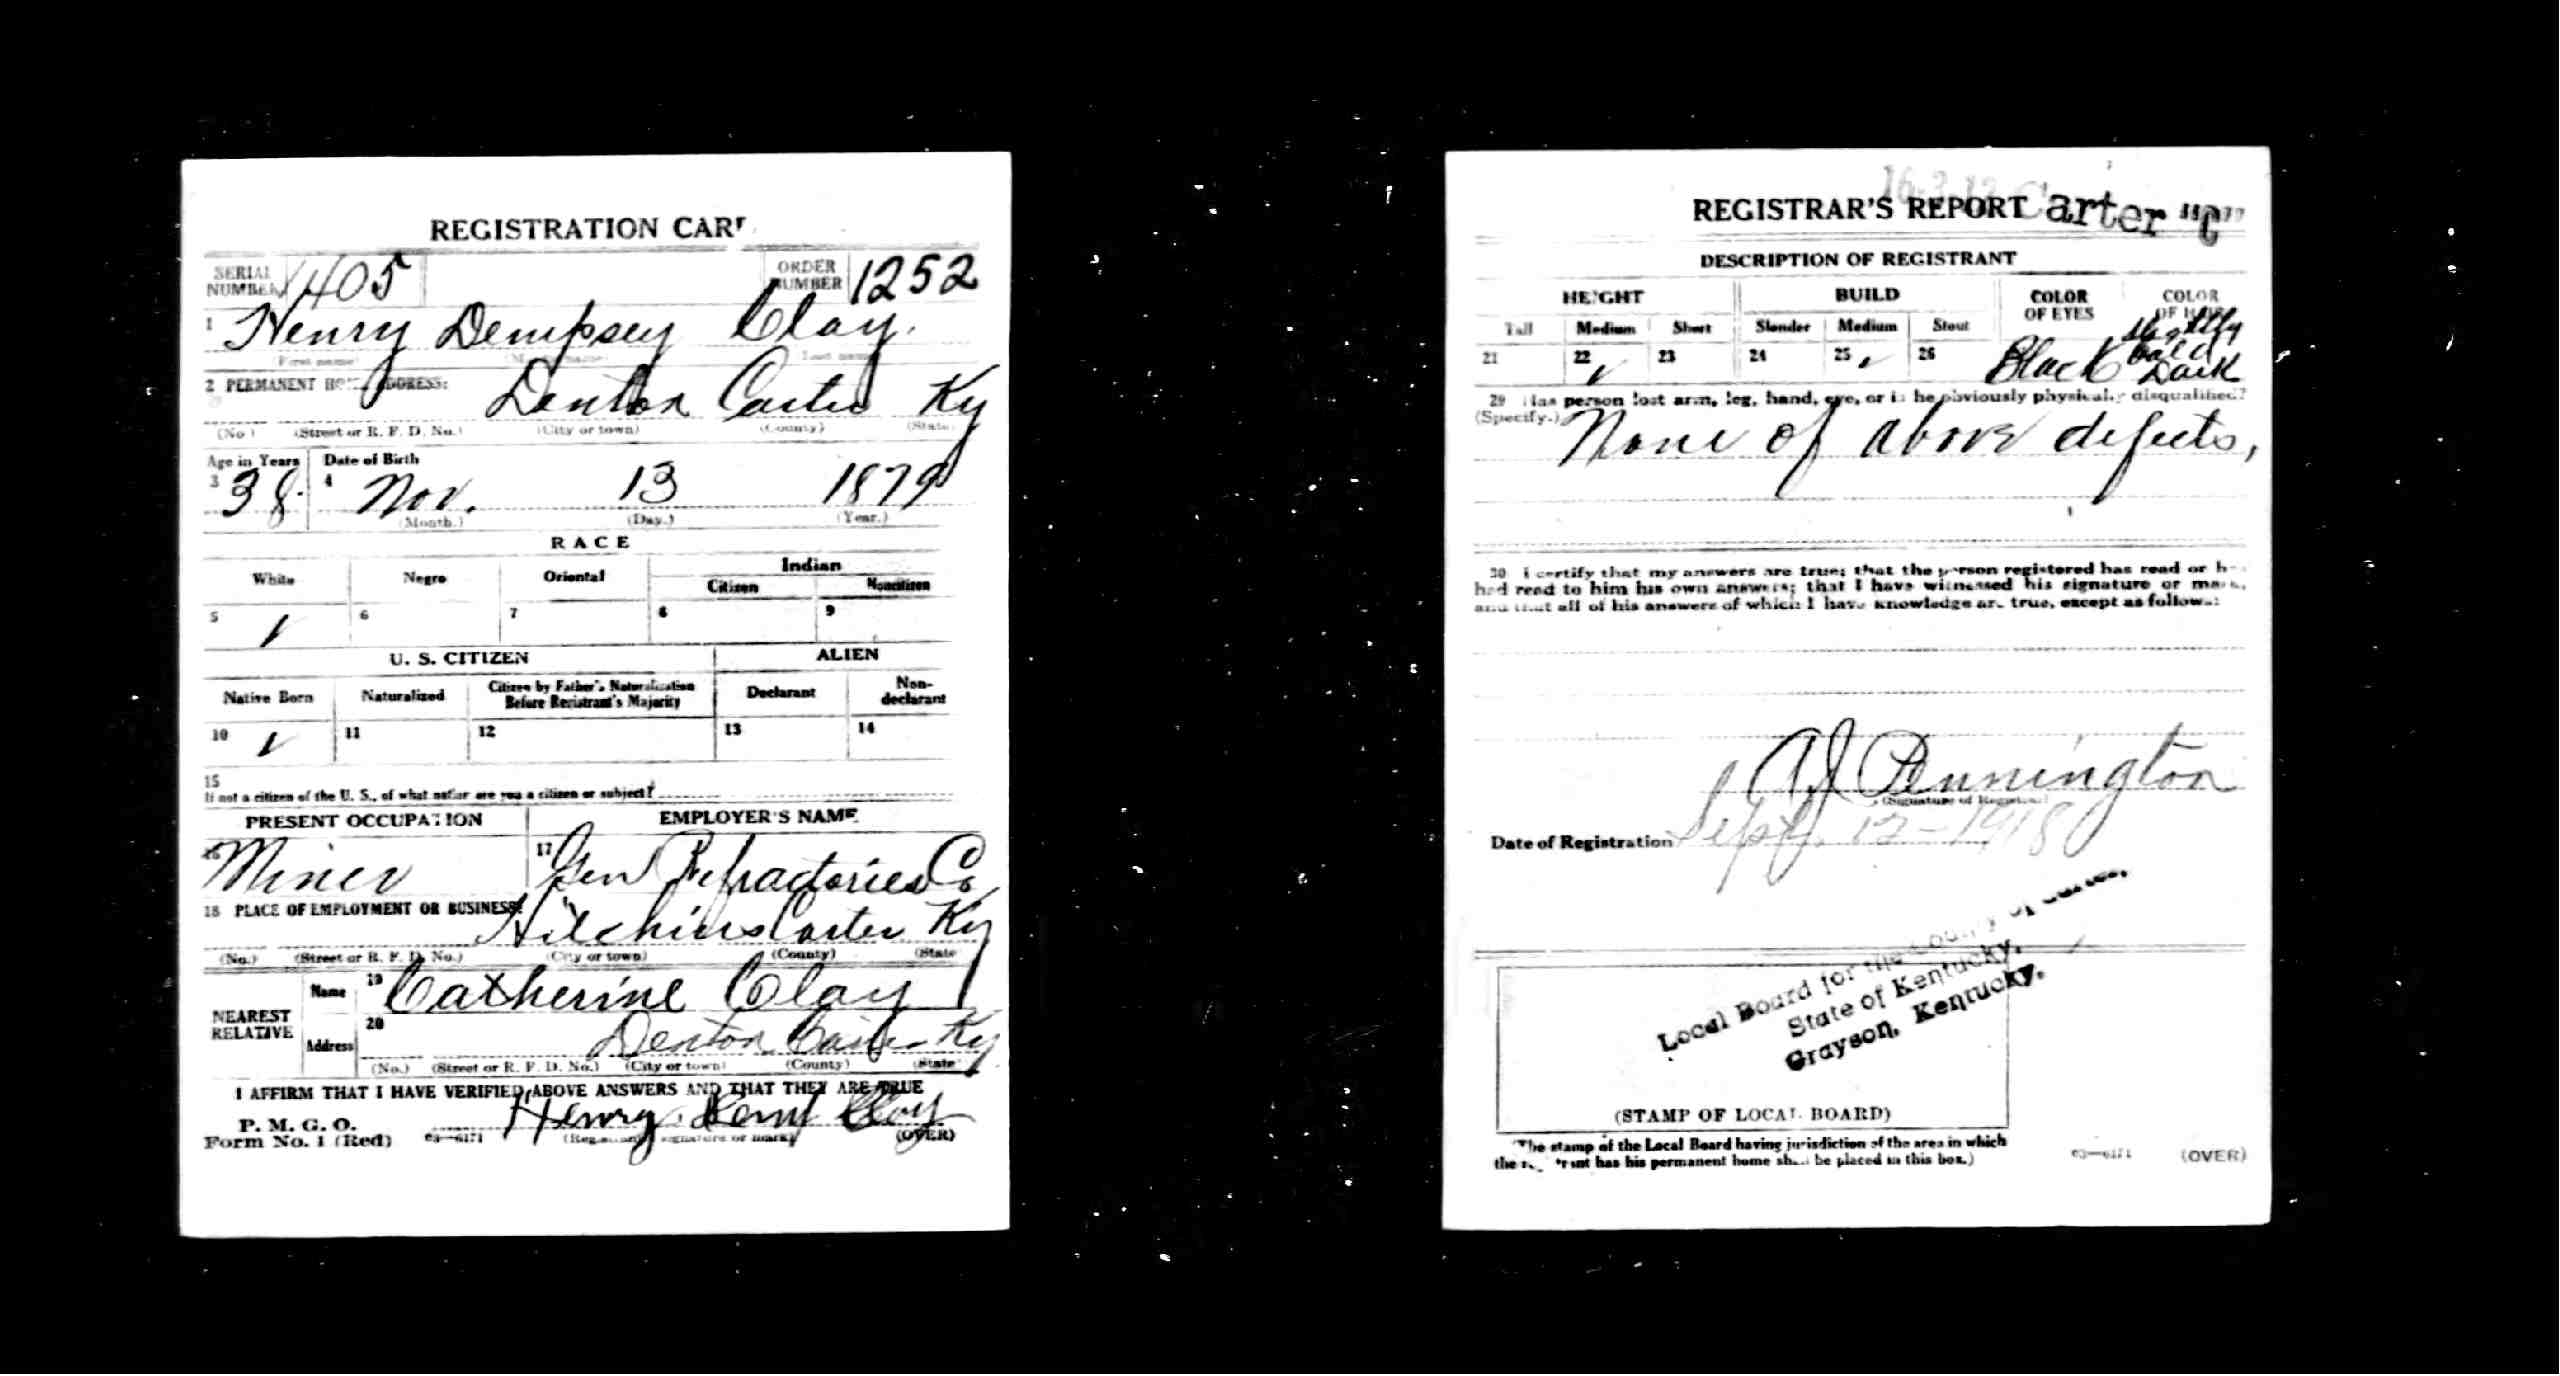 REGISTRATION CAR
SERIAL NUMBER 1405 ORDER NUMBER 1252
1 Henry Dempsey Clay.
(First name) (Middle name) (Last name)
2 PERMANENT HOME ADDRESS:
Denton Carter Ky
(No.) (Street or R. F. D. No.) (City or town) (County) (State)
Age in Years Date of Birth
3 38 4 Nov. 13 1879
(Month.) (Day.) (Year.)
RACE
White Negro Oriental Indian
Citizen Noncitizen
5 ✓ 6 7 8 9
U. S. CITIZEN ALIEN
Native Born Naturalized Citizen by Father's Naturalization Before Registrant's Majority Declarant Non-declarant
10 ✓ 11 12 13 14
15
If not a citizen of the U. S., of what nation are you a citizen or subject?
PRESENT OCCUPATION EMPLOYER'S NAME
16 Miner 17 Gen Refractories Co
18 PLACE OF EMPLOYMENT OR BUSINESS:
Hitchins Carter Ky
(No.) (Street or R. F. D. No.) (City or town) (County) (State)
NEAREST RELATIVE Name 19 Catherine Clay
Address 20 Denton Carter Ky
(No.) (Street or R. F. D. No.) (City or town) (County) (State)
I AFFIRM THAT I HAVE VERIFIED ABOVE ANSWERS AND THAT THEY ARE TRUE
P. M. G. O.
Form No. 1 (Red) 03—6171 Henry Demp Clay
(Registrant's signature or mark) (OVER)
16-3-12 Carter "C"
REGISTRAR'S REPORT
DESCRIPTION OF REGISTRANT
HEIGHT BUILD COLOR OF EYES COLOR OF HAIR
Tall Medium Short Slender Medium Stout
21 22 ✓ 23 24 25 ✓ 26 Black Slightly bald Dark
29 Has person lost arm, leg, hand, eye, or is he obviously physically disqualified?
(Specify.) None of above defects,
30 I certify that my answers are true; that the person registered has read or has
had read to him his own answers; that I have witnessed his signature or mark,
and that all of his answers of which I have knowledge are true, except as follows:
A J Pennington
(Signature of Registrar)
Date of Registration Sept. 12-1918
Local Board for the County of Carter,
State of Kentucky,
Grayson, Kentucky.
(STAMP OF LOCAL BOARD)
(The stamp of the Local Board having jurisdiction of the area in which
the registrant has his permanent home shall be placed in this box.)
03—6171 (OVER)